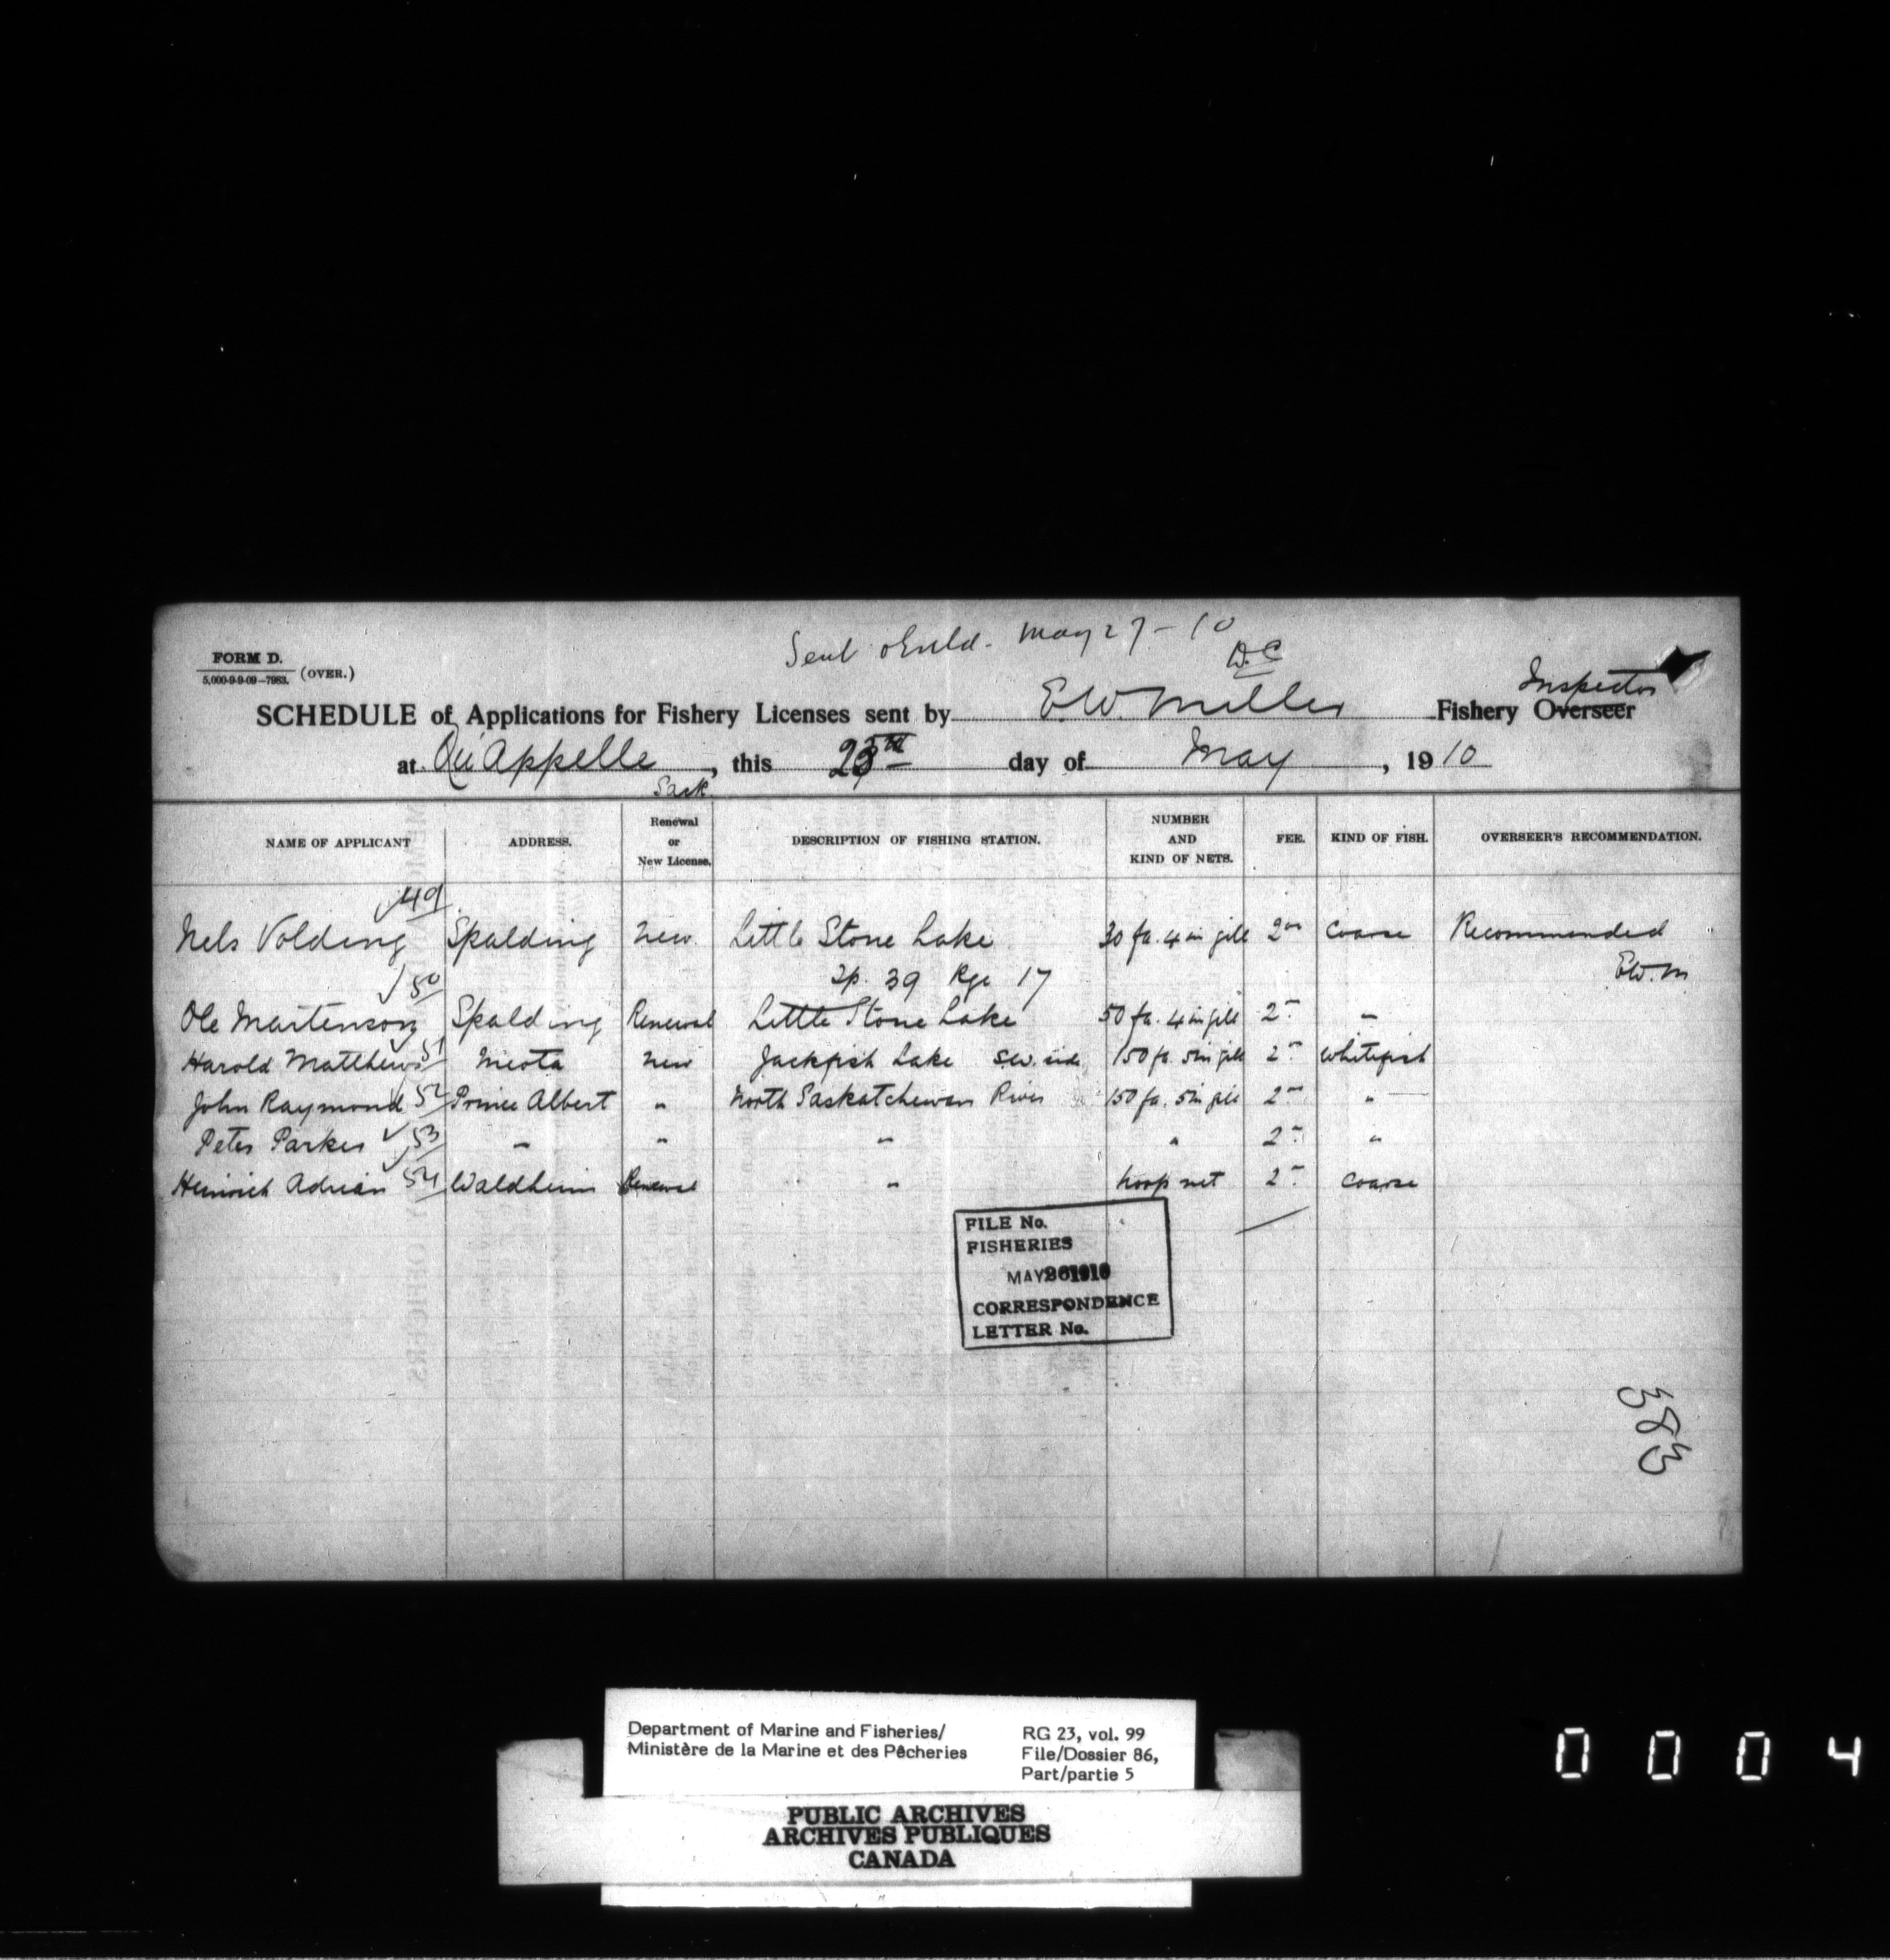 Sent & Enld. May 27 - 10
D.C
FORM D.
5,000-9-9-09-7983. (OVER.)
Inspector
SCHEDULE of Applications for Fishery Licenses sent by E.W. Miller Fishery Overseer
at Qu'Appelle, this 23rd day of May, 1910
Sask.
NAME OF APPLICANT ADDRESS. Renewal or New License. DESCRIPTION OF FISHING STATION. NUMBER AND KIND OF NETS. FEE. KIND OF FISH. OVERSEER'S RECOMMENDATION.
✓49
Nels Volding Spalding New. Little Stone Lake 30 fa. 4 in gill 2.00 Coarse Recommended
Tp. 39 Rge 17 E.W.M
✓50
Ole Martenson Spalding Renewal Little Stone Lake 50 fa. 4 in gill 2.- "
Harold Matthews ✓51 Meota New Jackfish Lake S.W. side 150 fa. 5 in gill 2.00 Whitefish
John Raymond ✓52 Prince Albert " North Saskatchewan River 150 fa. 5 in gill 2.00 "
Peter Parker ✓53 " " " " 2.- "
Heinrich Adrian ✓54 Waldheim Renewal " hoop net 2.- Coarse
FILE No.
FISHERIES
MAY 26 1910
CORRESPONDENCE
LETTER No.
383
Department of Marine and Fisheries/
Ministère de la Marine et des Pêcheries
RG 23, vol. 99
File/Dossier 86,
Part/partie 5
PUBLIC ARCHIVES
ARCHIVES PUBLIQUES
CANADA
0004